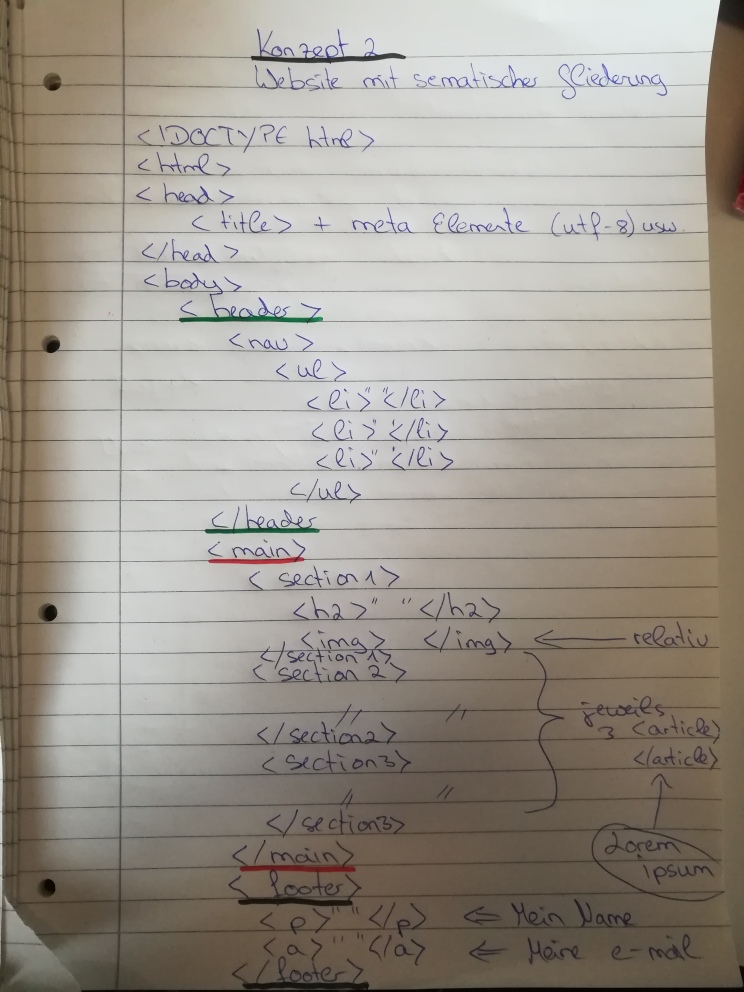 Konzept 2
Website mit sematischer Gliederung
<!DOCTYPE html>
<html>
<head>
<title> + meta Elemente (utf-8) usw.
</head>
<body>
<header>
<nav>
<ul>
<li>" "</li>
<li>" "</li>
<li>" "</li>
</ul>
</header
<main>
<section1>
<h2>" "</h2>
<img> </img> ← relativ
</section1>
<section 2>
// //
</section2>
<section3>
// //
</section3>
jeweils
3 <article>
</article>
Lorem
ipsum
</main>
<footer>
<p>" "</p> ⇐ Mein Name
<a>" "</a> ⇐ Meine e-mail
</footer>